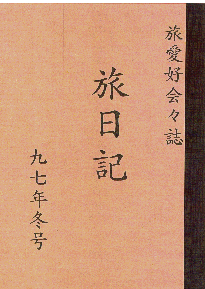 旅愛好会々誌
旅日記
九七年冬号